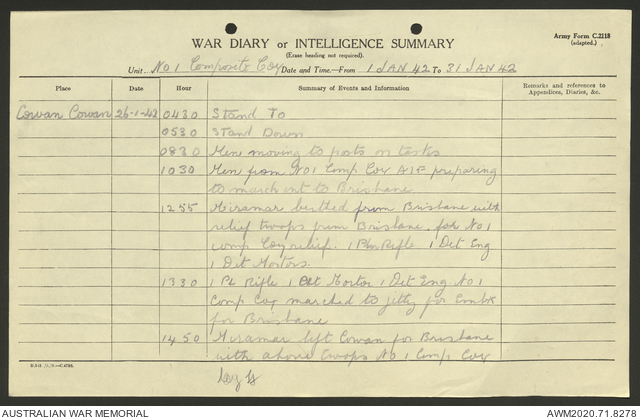 WAR DIARY or INTELLIGENCE SUMMARY
Army Form C.2118
(adapted.)
(Erase heading not required).
Unit No 1 Composite Coy Date and Time.—From 1 JAN 42 To 31 JAN 42
Place Date Hour Summary of Events and Information Remarks and references to Appendices, Diaries, &c.
Cowan Cowan 26-1-42 0430 Stand To
0530 Stand Down
0830 Men moving to posts on tasks
1030 Men from No 1 Comp Coy AIF preparing
to march out to Brisbane
1255 Miramar berthed from Brisbane with
relief troops from Brisbane for No 1
Comp Coy relief. 1 Pln Rifle 1 Det Eng
1 Det Mortars.
1330 1 Pl Rifle 1 Det Mortar 1 Det Eng No 1
Comp Coy marched to jetty for Embk
for Brisbane
1450 Miramar left Cowan for Brisbane
with above troops No 1 Comp Coy
AUSTRALIAN WAR MEMORIAL
AWM2020.71.8278